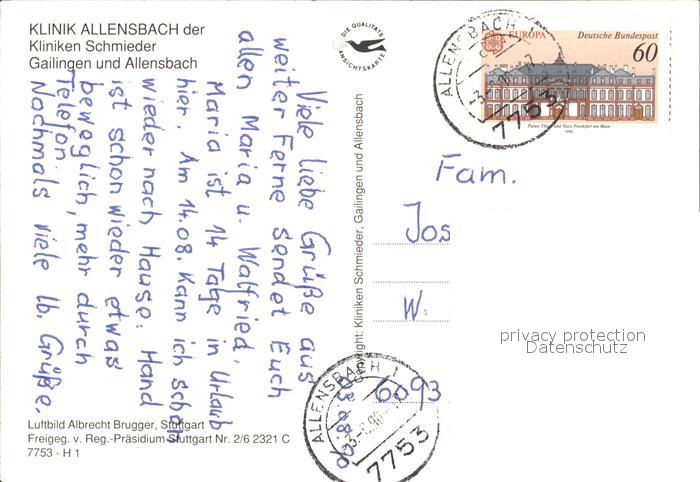 KLINIK ALLENSBACH der
Kliniken Schmieder
Gailingen und Allensbach
DIE QUALITÄTS
ANSICHTSKARTE
Viele liebe Grüße aus
weiter Ferne sendet Euch
allen Maria u. Walfried.
Maria ist 14 Tage in Urlaub
hier. Am 14.08. kann ich schon
wieder nach Hause: Hand
ist schon wieder etwas
beweglich, mehr durch
Telefon.
Nochmals viele lb. Grüße.
03.08.90
Copyright: Kliniken Schmieder, Gailingen und Allensbach
ALLENSBACH
7753
EUROPA Deutsche Bundespost
60
Palais Thurn und Taxis Frankfurt am Main
1990
Fam.
Jos
W.
6093
privacy protection
Datenschutz
ALLENSBACH 1
7753
Luftbild Albrecht Brugger, Stuttgart
Freigeg. v. Reg.-Präsidium Stuttgart Nr. 2/6 2321 C
7753 - H 1